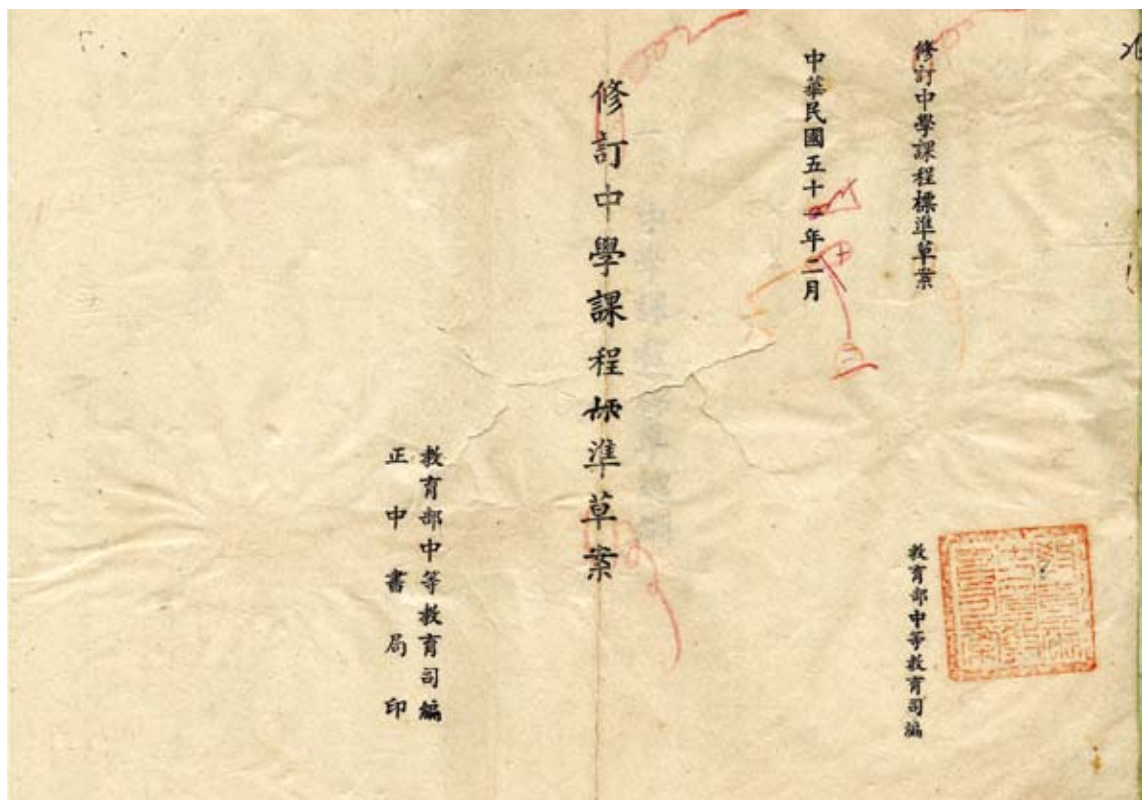 修訂中學課程標準草案
教育部中等教育司編
中華民國五十一年二月
修訂中學課程標準草案
教育部中等教育司編
正中書局印